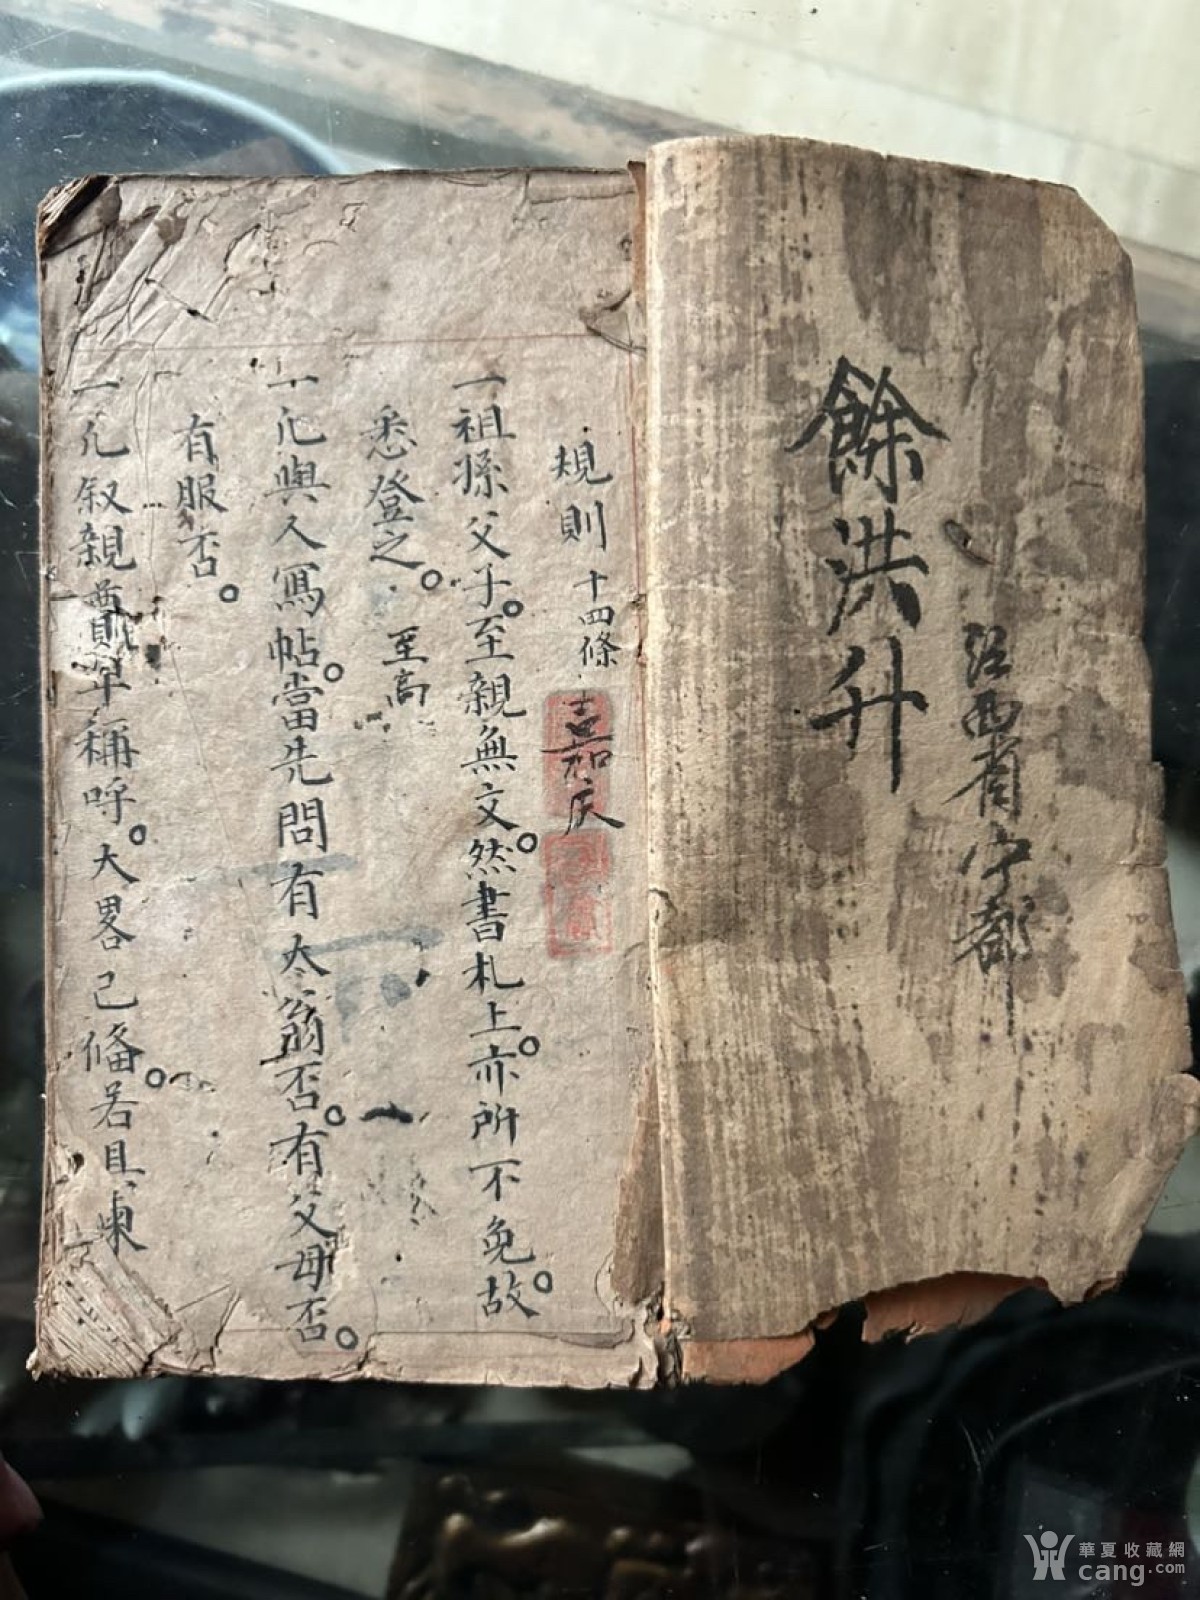 江西省宁都
餘洪升
規則 十四條 嘉庆
一祖孫父子。至親無文。然書札上。亦所不免。故
悉登之。至高
一凡與人寫帖。當先問有太翁否。有父母否。
有服否。
一凡叙親尊卑稱呼。大畧已俻。若具柬
華夏收藏網
cang.com